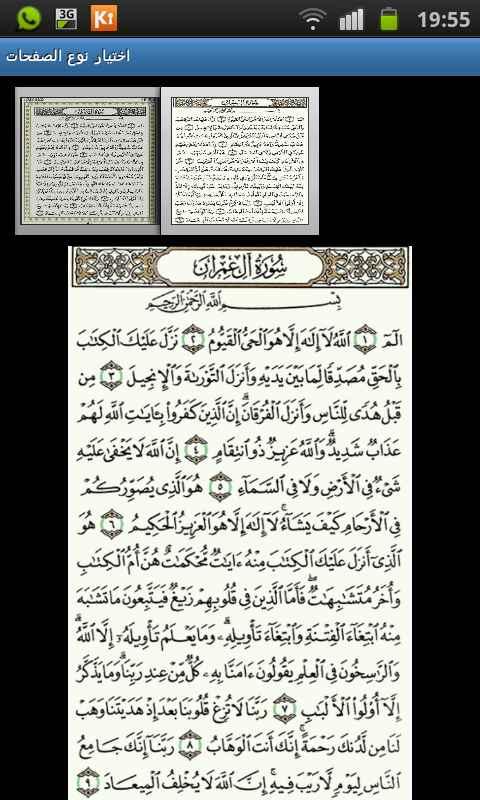 3G
K↑
19:55
اختيار نوع الصفحات
سُورَةُ آلِ عِمْرَانَ
بِسْمِ اللَّهِ الرَّحْمَٰنِ الرَّحِيمِ
الٓمٓ ١ اللَّهُ لَآ إِلَٰهَ إِلَّا هُوَ الْحَىُّ الْقَيُّومُ ٢ نَزَّلَ عَلَيْكَ الْكِتَٰبَ
بِالْحَقِّ مُصَدِّقًا لِّمَا بَيْنَ يَدَيْهِ وَأَنزَلَ التَّوْرَىٰةَ وَالْإِنجِيلَ ٣ مِن
قَبْلُ هُدًى لِّلنَّاسِ وَأَنزَلَ الْفُرْقَانَ ۗ إِنَّ الَّذِينَ كَفَرُوا۟ بِـَٔايَٰتِ اللَّهِ لَهُمْ
عَذَابٌ شَدِيدٌ ۗ وَاللَّهُ عَزِيزٌ ذُو انتِقَامٍ ٤ إِنَّ اللَّهَ لَا يَخْفَىٰ عَلَيْهِ
شَىْءٌ فِى الْأَرْضِ وَلَا فِى السَّمَآءِ ٥ هُوَ الَّذِى يُصَوِّرُكُمْ
فِى الْأَرْحَامِ كَيْفَ يَشَآءُ ۚ لَآ إِلَٰهَ إِلَّا هُوَ الْعَزِيزُ الْحَكِيمُ ٦ هُوَ
الَّذِىٓ أَنزَلَ عَلَيْكَ الْكِتَٰبَ مِنْهُ ءَايَٰتٌ مُّحْكَمَٰتٌ هُنَّ أُمُّ الْكِتَٰبِ
وَأُخَرُ مُتَشَٰبِهَٰتٌ ۖ فَأَمَّا الَّذِينَ فِى قُلُوبِهِمْ زَيْغٌ فَيَتَّبِعُونَ مَا تَشَٰبَهَ
مِنْهُ ابْتِغَآءَ الْفِتْنَةِ وَابْتِغَآءَ تَأْوِيلِهِۦ ۗ وَمَا يَعْلَمُ تَأْوِيلَهُۥٓ إِلَّا اللَّهُ ۗ
وَالرَّٰسِخُونَ فِى الْعِلْمِ يَقُولُونَ ءَامَنَّا بِهِۦ كُلٌّ مِّنْ عِندِ رَبِّنَا ۗ وَمَا يَذَّكَّرُ
إِلَّآ أُو۟لُوا۟ الْأَلْبَٰبِ ٧ رَبَّنَا لَا تُزِغْ قُلُوبَنَا بَعْدَ إِذْ هَدَيْتَنَا وَهَبْ
لَنَا مِن لَّدُنكَ رَحْمَةً ۚ إِنَّكَ أَنتَ الْوَهَّابُ ٨ رَبَّنَآ إِنَّكَ جَامِعُ
النَّاسِ لِيَوْمٍ لَّا رَيْبَ فِيهِ ۚ إِنَّ اللَّهَ لَا يُخْلِفُ الْمِيعَادَ ٩